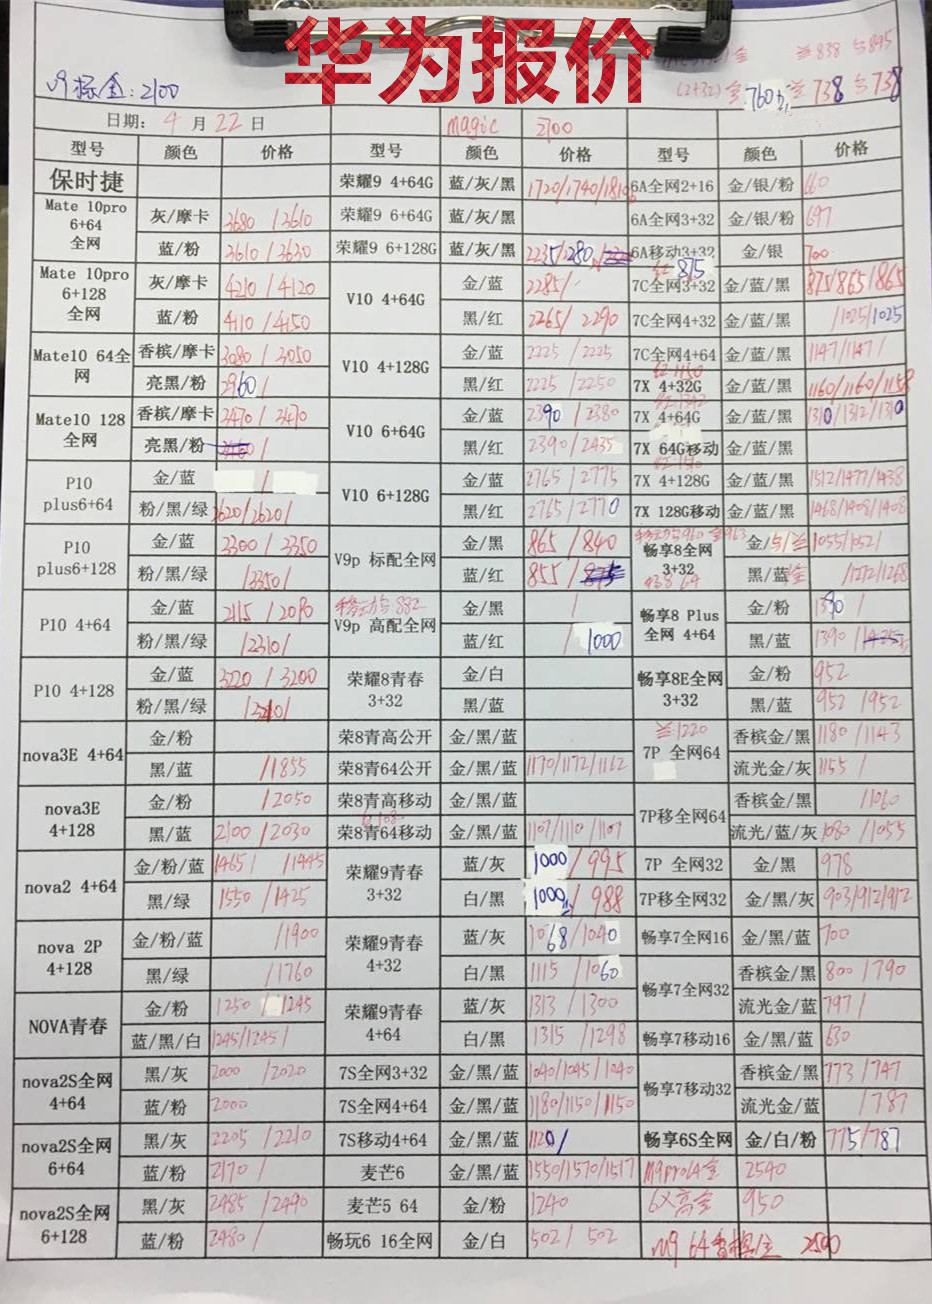 华为报价
金 兰838 与895
M9标金:2100 (2+32)金760 兰738 与738
日期: 4月22日 magic 2700
型号 颜色 价格 型号 颜色 价格 型号 颜色 价格
保时捷 荣耀9 4+64G 蓝/灰/黑 1720/1740/1810 6A全网2+16 金/银/粉 660
Mate 10pro 6+64 全网 灰/摩卡 3680/3610 荣耀9 6+64G 蓝/灰/黑 6A全网3+32 金/银/粉 697
蓝/粉 3610/3630 荣耀9 6+128G 蓝/灰/黑 2235/2280 6A移动3+32 金/银 700
Mate 10pro 6+128 全网 灰/摩卡 4210/4120 V10 4+64G 金/蓝 2285/ 875 7C全网3+32 金/蓝/黑 875/865/865
蓝/粉 4110/4150 黑/红 2265/2290 7C全网4+32 金/蓝/黑 /1025/1025
Mate10 64全网 香槟/摩卡 3080/3050 V10 4+128G 金/蓝 2225/2225 7C全网4+64 金/蓝/黑 1147/1147/
亮黑/粉 2960/ 黑/红 2225/2250 红1150 7X 4+32G 金/蓝/黑 1160/1160/1158
Mate10 128全网 香槟/摩卡 3470/3470 V10 6+64G 金/蓝 2390/2380 7X 4+64G 金/蓝/黑 1310/1312/1310
亮黑/粉 黑/红 2390/2435 7X 64G移动 金/蓝/黑
P10 plus6+64 金/蓝 / V10 6+128G 金/蓝 2765/2775 7X 4+128G 金/蓝/黑 1512/1477/1438
粉/黑/绿 2620/2620/ 黑/红 2765/2770 7X 128G移动 金/蓝/黑 1468/1408/1408
P10 plus6+128 金/蓝 3300/3350 V9p 标配全网 金/黑 865/840 移动与960 金963 畅享8全网 3+32 金/与/兰 1055/1052/
粉/黑/绿 /3350/ 蓝/红 855/875 938 64 黑/蓝金 /1272/1268
P10 4+64 金/蓝 2115/2090 移动与882 V9p 高配全网 金/黑 / 畅享8 Plus 全网 4+64 金/粉 1390/
粉/黑/绿 /2310/ 蓝/红 /1000 黑/蓝 1390/1425
P10 4+128 金/蓝 3220/3200 荣耀8青春 3+32 金/白 畅享8E全网 3+32 金/粉 952
粉/黑/绿 黑/蓝 黑/蓝 952/952
nova3E 4+64 金/粉 荣8青高公开 金/黑/蓝 兰1220 7P 全网64 香槟金/黑 1180/1143
黑/蓝 /1855 荣8青64公开 金/黑/蓝 1170/1172/1162 流光金/灰 1155/
nova3E 4+128 金/粉 /2050 荣8青高移动 金/黑/蓝 7P移全网64 香槟金/黑 /1060
黑/蓝 2100/2030 荣8青64移动 金/黑/蓝 1107/1110/1107 流光/蓝/灰 1080/1055
nova2 4+64 金/粉/蓝 1465/ /1445 荣耀9青春 3+32 蓝/灰 1000/995 7P 全网32 金/黑 978
黑/绿 1550/1425 白/黑 1000/988 7P移全网32 金/黑/灰 903/912/912
nova 2P 4+128 金/粉/蓝 /1900 荣耀9青春 4+32 蓝/灰 1068/1040 畅享7全网16 金/黑/蓝 700
黑/绿 /1760 白/黑 1115/1060 畅享7全网32 香槟金/黑 800/790
NOVA青春 金/粉 1250/1245 荣耀9青春 4+64 蓝/灰 1313/1300 流光金/蓝 797/
蓝/黑/白 1245/1245/ 白/黑 1315/1298 畅享7移动16 金/黑/蓝 630
nova2S全网 4+64 黑/灰 2000/2020 7S全网3+32 金/黑/蓝 1040/1045/1040 畅享7移动32 香槟金/黑 773/747
蓝/粉 2000 7S全网4+64 金/黑/蓝 1180/1150/1150 流光金/蓝 /787
nova2S全网 6+64 黑/灰 2205/2210 7S移动4+64 金/黑/蓝 1120/ 畅享6S全网 金/白/粉 775/787
蓝/粉 2170/ 麦芒6 金/黑/蓝 1550/1570/1517 M9pro64金 2540
nova2S全网 6+128 黑/灰 2485/2490 麦芒5 64 金/粉 1240 6X高金 950
蓝/粉 2480/ 畅玩6 16全网 金/白 502/502 M9 64香槟金 2500